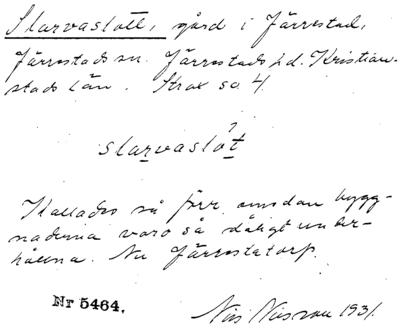 Slarvaslott, gård i Järrestad,
Järrestads sn. Järrestads hd. Kristian-
stads län. Strax so 4.
slarvaslot
Kallades så förr emedan bygg-
naderna voro så dåligt under-
hållna. Nu Järrestatorp.
Nr 5464.
Nils Nilsson 1931.